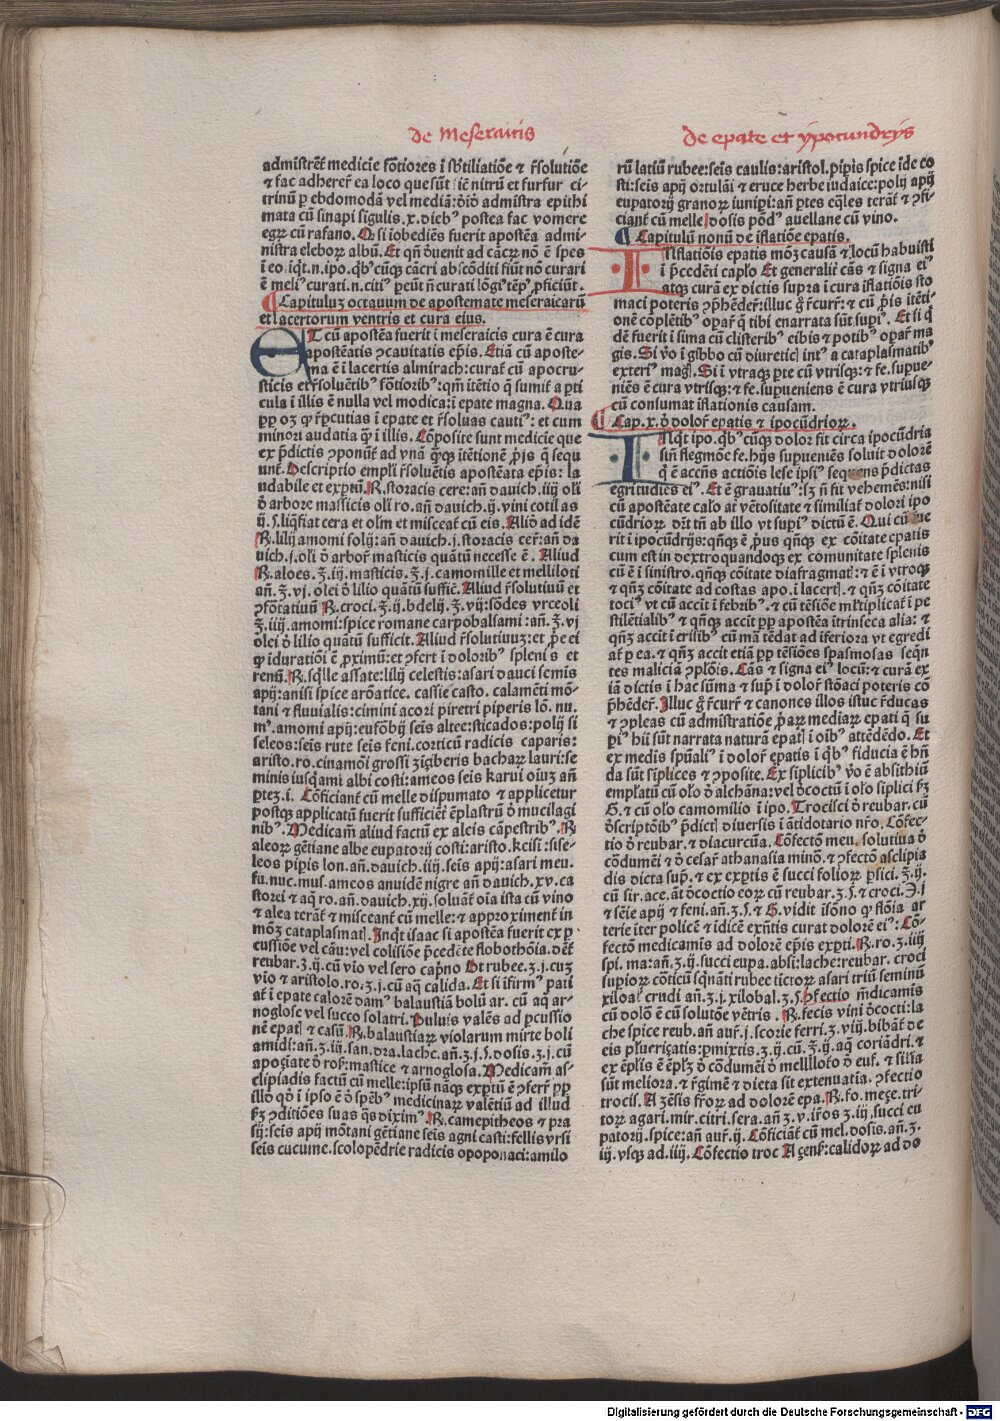 de Meseraicis
admistrēt medicīe fōtiores ī sb'tiliatiōe ⁊ r̄solutiōe
⁊ fac adherer̄ ea loco que sūt: ic̄ nitrū et furfur ci-
trinū ꝑ ebdomodā vel mediā: ōīo admistra epithi
mata cū sinapi sīgulis .x. dieb⁹ postea fac vomere
egꝝ cū rafano. Q si iobediēs fuerit apostēa admi-
nistra eleboꝝ albū. Et qn̄ ꝺuenit ad cācꝝ nō ē spes
ī eo. iqͥt.n.ipo.qb⁹ cūqꝫ cācri abscōditi fiūt nō curari
ē meli⁹ curati.n.citi⁹ ꝑeūt n̄ curati lōgi⁹ tēꝑ ꝓficiūt.
Capitulūꝫ octauum de apostemate meseraicarū
et lacertorum ventris et cura eius.
ET cū apostēa fuerit ī meseraicis cura ē cura
apostēatis ꝯcauitatis ep̄is. Etiā cū aposte-
ma ē ī lacertis almirach: curat̄ cū apocru-
sticis et r̄soluētib⁹ fōtiorib⁹: qm̄ itētio q̄ sumit̄ a ꝑti
cula ī illis ē nulla vel modica: ī epate magna. Qua
minori audatia qꝫ ī illis. Cōposite sunt medicie que
ex p̄dictis ꝯponūt̄ ad vnā qͣꝫqꝫ itētionē p̄ꝫs q̄ sequ
unt̄. Descriptio emplī r̄soluētis apostēata ep̄is: la
udabile et exꝑtū. ℞. storacis cere: an̄ dauich .iiij olī
ꝺ arbore masticis olī ro. an̄ dauich .ij. vini cotil as
ij. ʃ. liqͥfiat cera et olm̄ et misceat̄ cū eis. Aliō ad idē
℞. lilij amomi solij: an̄ dauich .j. storacis cer̄: an̄ da
uich .j. olī ꝺ arbor̄ masticis quātū necesse ē. Aliud
℞. aloes. ʒ. iij. masticis. ʒ. j. camomille et melliloti
an̄. ʒ. vj. olei ꝺ lilio quātū suffic̄. Aliud r̄solutiuū et
ꝯfōtatiuū ℞. croci. ʒ. ij. bdelij. ʒ. vij: sōdes vrceoli
ʒ. iiij. amomi: spice romane carpobalsami: an̄. ʒ. vj
olei ꝺ lilio quātū sufficit. Aliud r̄solutiuuꝫ: et ꝓe ei
qꝫ iduratiōi ē ꝓximū: et ꝯfert ī dolorib⁹ spleni s et
renū. ℞. sqͥlle assate: lilij celestis: asari dauci semīs
apij: anisi spice arōatice. cassie casto. calamēti mō-
tani ⁊ fluuialis: cimini acori piretri piperis lō. nu.
mᵒ. amomi apij: eufōbij seīs altee: sticados: polij si
seleos: seīs rute seīs feni. corticū radicis caparis:
aristo. ro. cinamōi grossi zīgiberis bachaꝝ lauri: se
minis iusqͥami albi costi: ameos seīs karui oiuꝫ an̄
ꝑteꝫ .i. Cōficiant̄ cū melle dispumato ⁊ applicetur
postqꝫ applicatū fuerit sufficiēt̄ ēplastrū ꝺ mucilagi
nib⁹. Medicam̄ aliud factū ex aleis cāpestrib⁹. ℞
aleoꝝ gētiane albe eupatorij costi: aristo. kcisi: sise-
leos piꝑis lon. an̄. dauich. iiij. seīs apij: asari meu.
fu. nuc. mus. ameos anuidē nigre an̄ dauich. xv. ca
storei ⁊ aq̄ ro. an̄. dauich. xij. soluāt̄ oīa ista cū vino
⁊ alea terāt̄ ⁊ misceant̄ cū melle: ⁊ approximent̄ in
mōꝫ cataplasmat̄. Inqͥt isaac si apostēa fuerit ex ꝑ
cussiōe vel cāu: vel colisiōe p̄cedēte flobothōīa. det̄
reubar. ʒ. ij. cū vīo vel sero capno Ut rubee. ʒ. j. cuꝫ
vīo ⁊ aristolo. ro. ʒ. j. cū aq̄ calida. Et si īfirm⁹ pati
at̄ ī epate calorē dam⁹ balaustiā bolū ar. cū aq̄ ar-
noglose vel succo solatri. Puluis valēs ad ꝑcussio
nē epat̄ ⁊ casū. ℞. balaustiaꝝ violarum mirte boli
amidi: an̄. ʒ. iij. san. dra. lache. an̄. ʒ. j. ʃ. dosis. ʒ. j. cū
apoçiate ꝺ ros̄: mastice ⁊ arnoglosa. Medicam̄ as-
clipiadis factū cū melle: ipsū nāqꝫ exꝑtū ē ꝯferr̄ ꝓꝑ
illō qͦ ī ipso ē ꝺ spēb⁹ medicinaꝝ valētiū ad illud
ẜꝫ ꝯditiōes suas qͣs dixim⁹. ℞. camepitheos ⁊ pra
sij: seīs apij mōtani gētiane seīs agni casti: fellis vrsi
seīs cucume. scolopēdrie radicis opoponaci: amilo
de epate et ypocundrijs
rū latiū rubee: seīs caulis: aristol. pipis spice īde co
sti: seīs apij ortulāi ⁊ eruce herbe iudaice: polij apij
eupatorij granoꝝ iunipi: an̄ ꝑtes eq̄les terāt̄ ⁊ ꝯfi-
ciant̄ cū melle dosis pōd⁹ auellane cū vino.
Capitulū nonū de īflatiōe epatis.
INflatiōis epatis mōꝫ causā ⁊ locū habuisti
ī p̄cedēti cap̄lo Et generalit̄ cās ⁊ signa ei⁹
atqꝫ curā ex dictis supra ī cura īflatiōis sto
maci poteris ꝯp̄hēder̄: illuc g̊ r̄curr̄: ⁊ cū p̄is itēti-
onē cōplētib⁹ opar̄ q̄ tibi enarrata sūt supi⁹. Et si q̄
dē fuerit ī sima cū clisterib⁹ cibis ⁊ potib⁹ opar̄ ma
gis. Si vo ī gibbo cū diuretic̄ int⁹ a cataplasmatib⁹
exteri⁹ maḡ. Si ī vtraqꝫ ꝑte cū vtrisqꝫ: ⁊ fe. supue-
niēs ē cura vtrisqꝫ: ⁊ fe. supueniens ē cura vtriusqꝫ
cū consumat īflationis causam.
Cap .x. ꝺ dolor̄ epatis ⁊ ipocūdrioꝝ.
INqͥt ipo. qb⁹ cūqꝫ dolor fit circa ipocūdria
sin̄ flegmōe fe. hijs supueniēs soluit dolorē
q̄ ē accn̄s actiōis lese ipsi⁹ sequens p̄dictas
egritudies ei⁹. Et ē grauatiu⁹: sꝫ n̄ fit vehemēs: nisi
cū apostēate calo at̄ vētositate ⁊ similiat̄ dolori ipo
cūdrioꝝ. dn̄t tn̄ ab illo vt supi⁹ dictū ē. Qui cū ue
rit ī ipocūdrijs: qn̄qꝫ ē ꝓus qn̄qꝫ ex cōitate epatis
cum est in dextro quandoqꝫ ex comunitate splenis
cū ē ī sinistro. qn̄qꝫ cōitate diafragmat̄: ⁊ ē ī vtroqꝫ
⁊ qn̄ꝫ cōitate ad costas apo. ī lacert̄. ⁊ qn̄ꝫ cōitate
toci⁹ vt cū accīt ī febrib⁹. ⁊ cū tēsiōe ml̄tiplicat̄ ī pe
stilētialib⁹ ⁊ qn̄qꝫ accīt ꝓꝑ apostēa itrīnseca alia: ⁊
qn̄ꝫ accīt ī crisib⁹ cū mā tēdat ad īferiora vt egredi
at̄ ꝑ ea. ⁊ qn̄ꝫ accīt etiā ꝓꝑ tēsiōes spasmosas seqn̄
tes maliciā ꝯplōis. Cās ⁊ signa ei⁹ locū: ⁊ curā ex
iā dictis ī hac sūma ⁊ supͣ ī dolor̄ stōaci poteris cō
p̄hēder̄. Illuc g̊ r̄curr̄ ⁊ canones illos istuc r̄ducas
⁊ ꝯpleas cū admistratiōe ꝓaꝝ mediaꝝ epati q̄ su
pi⁹ hij sūt narrata naturā epat̄ ī oib⁹ attēdēdo. Et
ex medis spūali⁹ ī dolor̄ epatis ī qb⁹ fiducia ē hn̄
da sūt siplices ⁊ ꝯposite. Ex siplicib⁹ vo ē absithiū
emplatū cū olo ꝺ alchāna: vel ꝺcoctū ī olo siplici ẜꝫ
G. ⁊ cū olo camomilio ī ipo. Trocisci ꝺ reubar. cū
ꝺscriptōib⁹ p̄dict̄ diuersis ī ātidotario nr̄o. Cōfec-
tio ꝺ reubar. ⁊ diacurcūa. Cōfectō meu. solutiua ꝺ
cōdumēi ⁊ ꝺ cesar̄ athanasia minō. ⁊ ꝯfectō asclipia
dis dicta supͣ. ⁊ ex exꝑtis ē succi folioꝝ ꝑsici. ʒ. ij.
cū sir. ace. āt ꝺcoctio eoꝝ cū reubar. ʒ. ʃ. ⁊ croci. ℈. j
⁊ sēie apij ⁊ feni. an̄. ʒ. ʃ. ⁊ G. vidit isōno qꝫ flōīa ar
terie iter policē ⁊ idicē exn̄tis curat dolorē ei⁹: Cō-
fectō medicamīs ad dolorē ep̄is exꝑti. ℞. ro. ʒ. iiij
spi. ma: an̄. ʒ. ij. succi eupa. absi: lache: reubar. croci
supioꝝ cōticū sq̄nāti rubee tictoꝝ asari triū seminū
xiloal̄ crudi an̄. ʒ. j. xilobal. ʒ. ʃ. ꝯfectio m̄dicamis
cū dolō ē cū solutōe vētris. ℞. fecis vini ꝺcocti: la
che spice reub. an̄ aur̄. j. scorie ferri. ʒ. viij. bibāt̄ de
eis plueriçatis: ꝑmixtis. ʒ. ij. cū. ʒ. ij. aq̄ coriādri. ⁊
ex ēplīs ē ēplꝫ ꝺ cōdumēi ꝺ melliloto ꝺ euf. ⁊ silia
sūt meliora. ⁊ r̄gimē ⁊ dieta sit extenuatia. ꝯfectio
trocis. Aʒēsis frōꝝ ad dolorē epa. ℞. fo. meçe. tri-
toꝝ agari. mir. citri. sera. an̄ ʒ. v. iros ʒ. iij. succi eu
patorij. spice: an̄ aur̄. ij. Cōficiāt̄ cū mel. dosis. an̄. ʒ.
iij. vsqꝫ ad. iiij. Cōfectio troc Açenẜ: calidoꝝ ad do
Digitalisierung gefördert durch die Deutsche Forschungsgemeinschaft - DFG